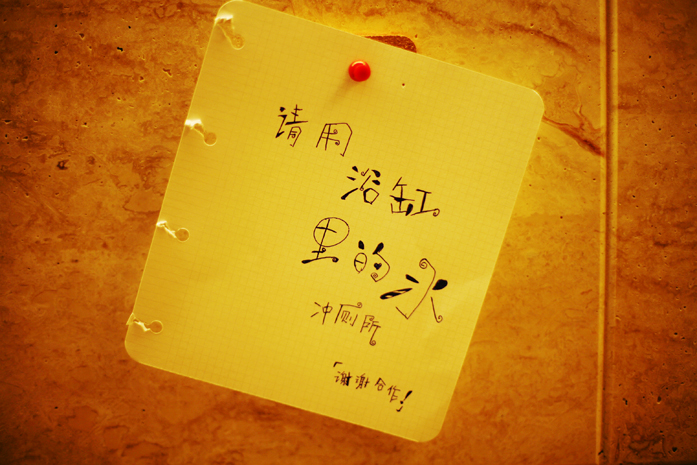 请用
浴缸
里的水
冲厕所
「谢谢合作!